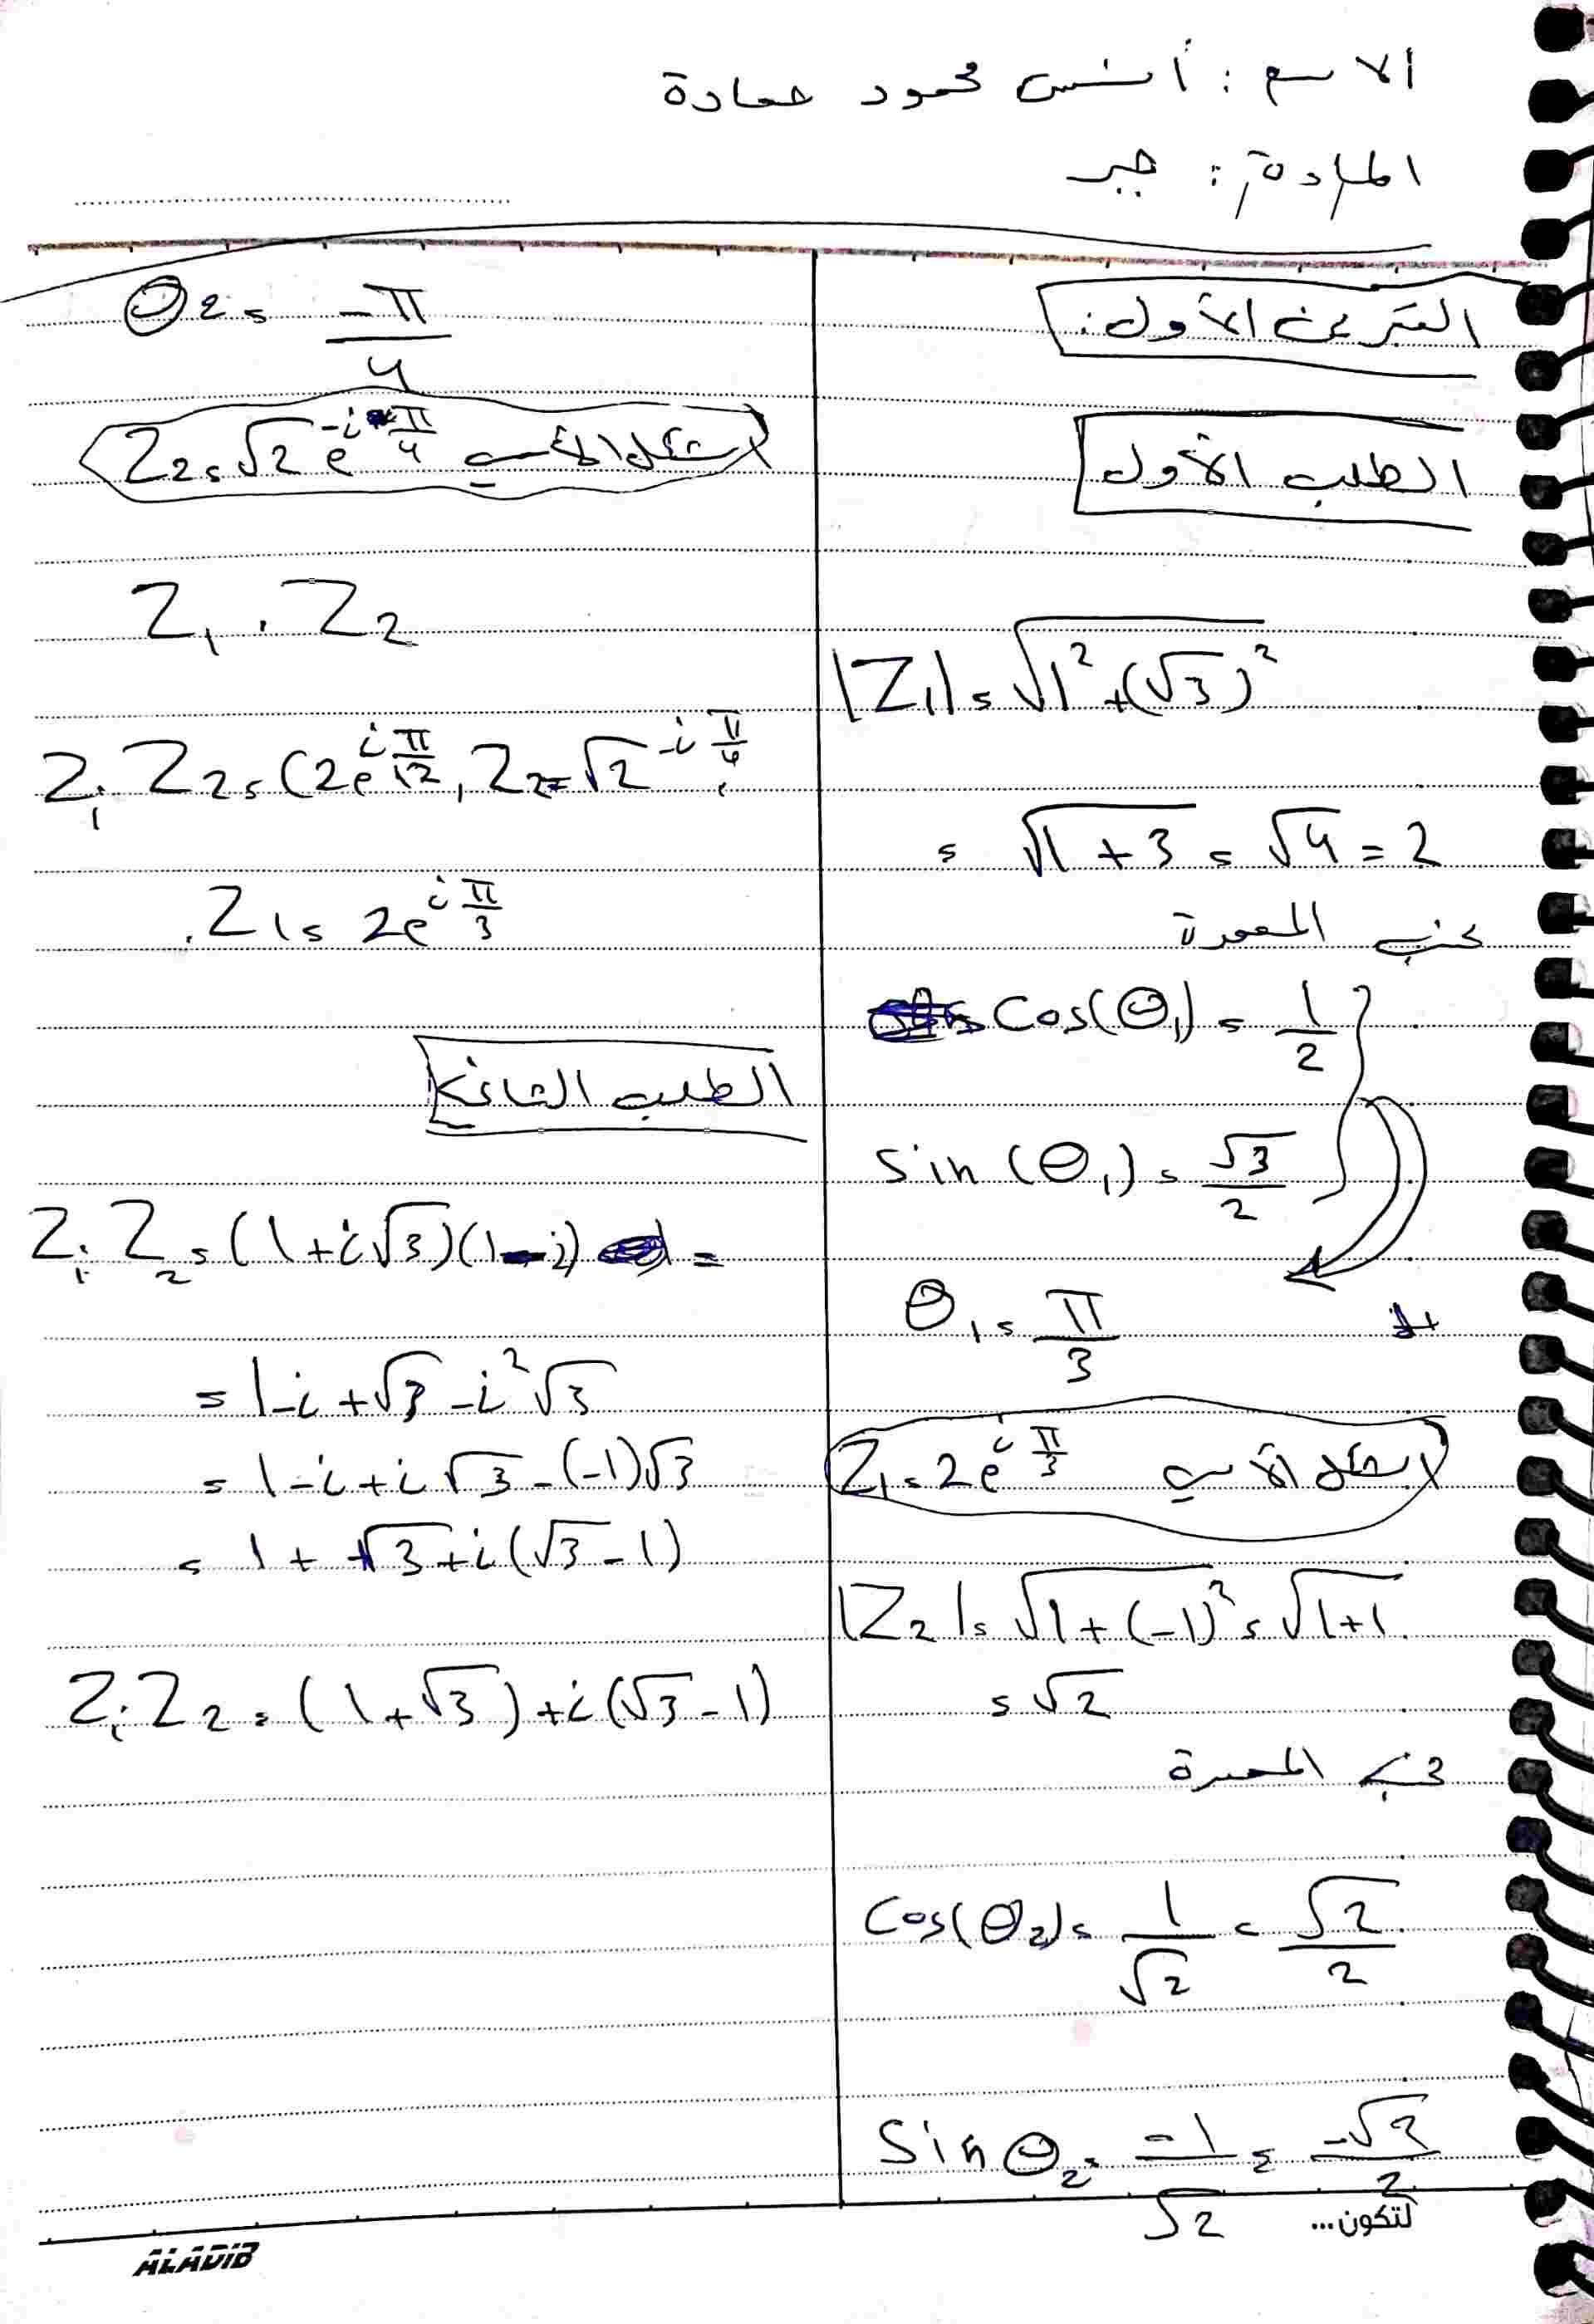 الاسم : أنس محمود حمادة
المادة : جبر
التمرين الأول :
الطلب الأول
|Z₁| = √(1² + (√3)²)
= √(1 + 3) = √4 = 2
Cos(θ₁) = 1/2
Sin(θ₁) = √3/2
θ₁ = π/3
Z₁ = 2e^(i π/3) الشكل الأسي
|Z₂| = √(1 + (-1)²) = √(1+1)
= √2
Cos(θ₂) = 1/√2 = √2/2
Sin θ₂ = -1/√2 = -√2/2
لتكون...
θ₂ = -π/4
Z₂ = √2 e^(-i π/4) الشكل الأسي
Z₁ . Z₂
Z₁ . Z₂ = (2e^(i π/12), Z₂ = √2^(-i π/4)
. Z₁ = 2e^(i π/3)
الطلب الثاني
Z₁ . Z₂ = (1 + i√3)(1 - i) =
= 1 - i + √3 - i²√3
= 1 - i + i√3 - (-1)√3
= 1 + √3 + i(√3 - 1)
Z₁ . Z₂ = (1 + √3) + i(√3 - 1)
ALADIB